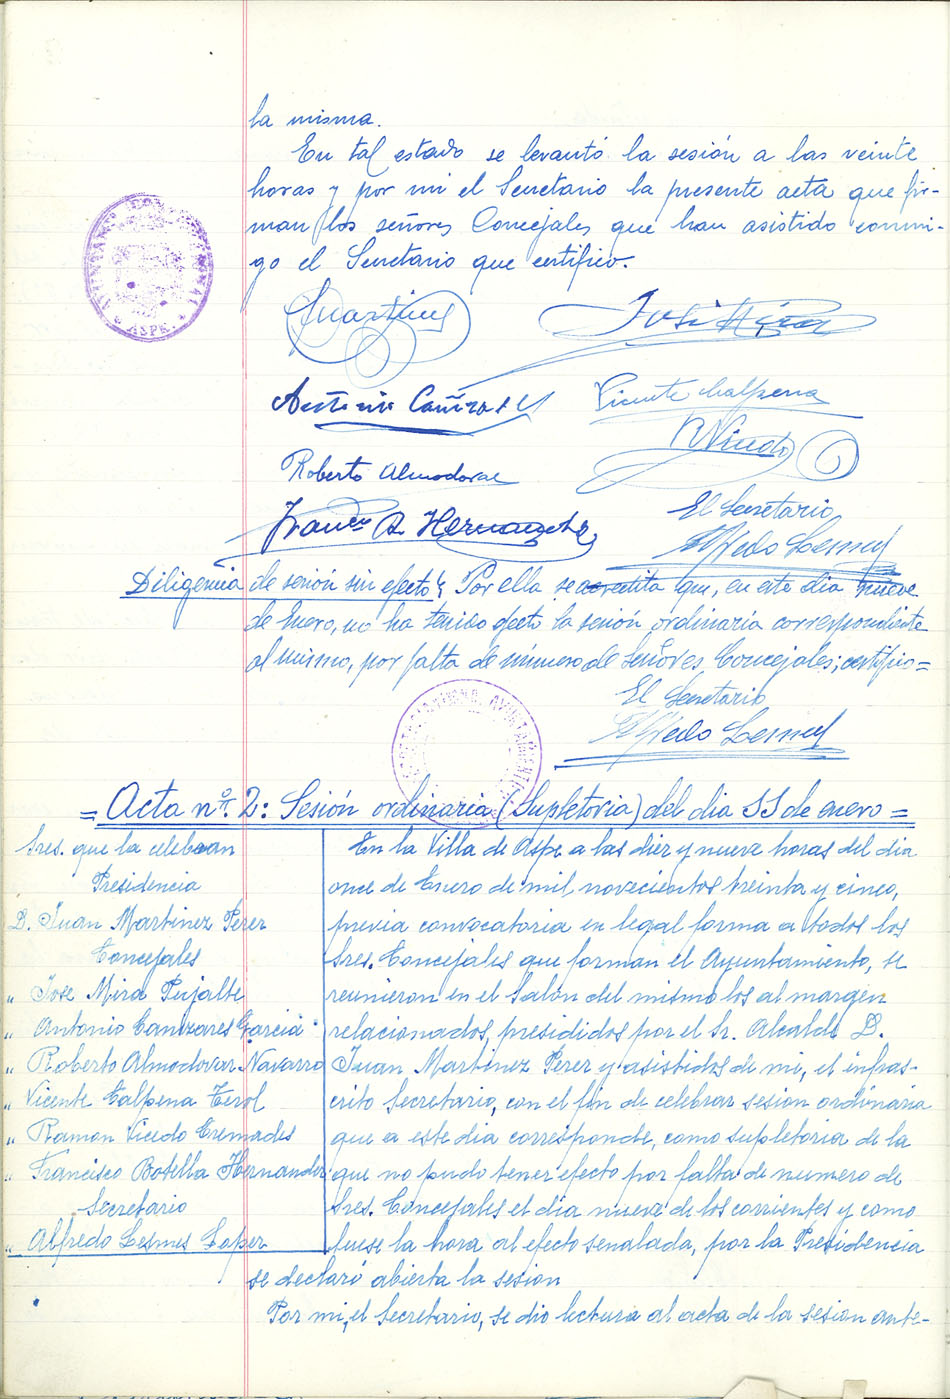 la misma.
En tal estado se levantó la sesión a las veinte
horas y por mi el Secretario la presente acta que fir-
man los señores Concejales que han asistido conmi-
go el Secretario que certifico.
JMartinez
José Mira
Antonio Cañizares
Vicente Calpena
RVicedo
Roberto Almodovar
El Secretario
Alfredo Lesmes
Diligencia de sesión sin efecto: Por ella se acredita que, en este dia nueve
de Enero, no ha tenido efecto la sesión ordinaria correspondiente
al mismo, por falta de número de Señores Concejales; certifico=
El Secretario
Alfredo Lesmes
= Acta nº. 2: Sesión ordinaria (Supletoria) del dia 11 de enero =
Sres. que la celebran
Presidencia
D. Juan Martinez Perez
Concejales
" Jose Mira Pujalte
" Antonio Canizares Garcia
" Roberto Almodovar Navarro
" Vicente Calpena Cerol
" Ramon Vicedo Cremades
" Francisco Botella Hernandez
Secretario
" Alfredo Lesmes Lopez
En la Villa de Aspe a las diez y nueve horas del dia
once de Enero de mil novecientos treinta y cinco,
previa convocatoria en legal forma a todos los
Sres. Concejales que forman el Ayuntamiento, se
reunieron en el Salón del mismo los al margen
relacionados, presididos por el Sr. Alcalde D.
Juan Martinez Perez y asistidos de mi, el infras-
crito Secretario, con el fin de celebrar sesion ordinaria
que a este dia corresponde, como supletoria de la
que no pudo tener efecto por falta de numero de
Sres. Concejales el dia nueve de los corrientes y como
fuese la hora al efecto senalada, por la Presidencia
se declaró abierta la sesion
Por mi, el Secretario, se dio lectura al acta de la sesion ante-